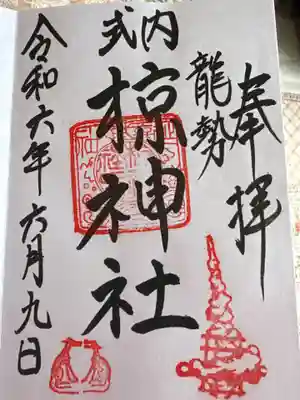 奉拝
龍勢
式内
椋神社
令和六年六月九日